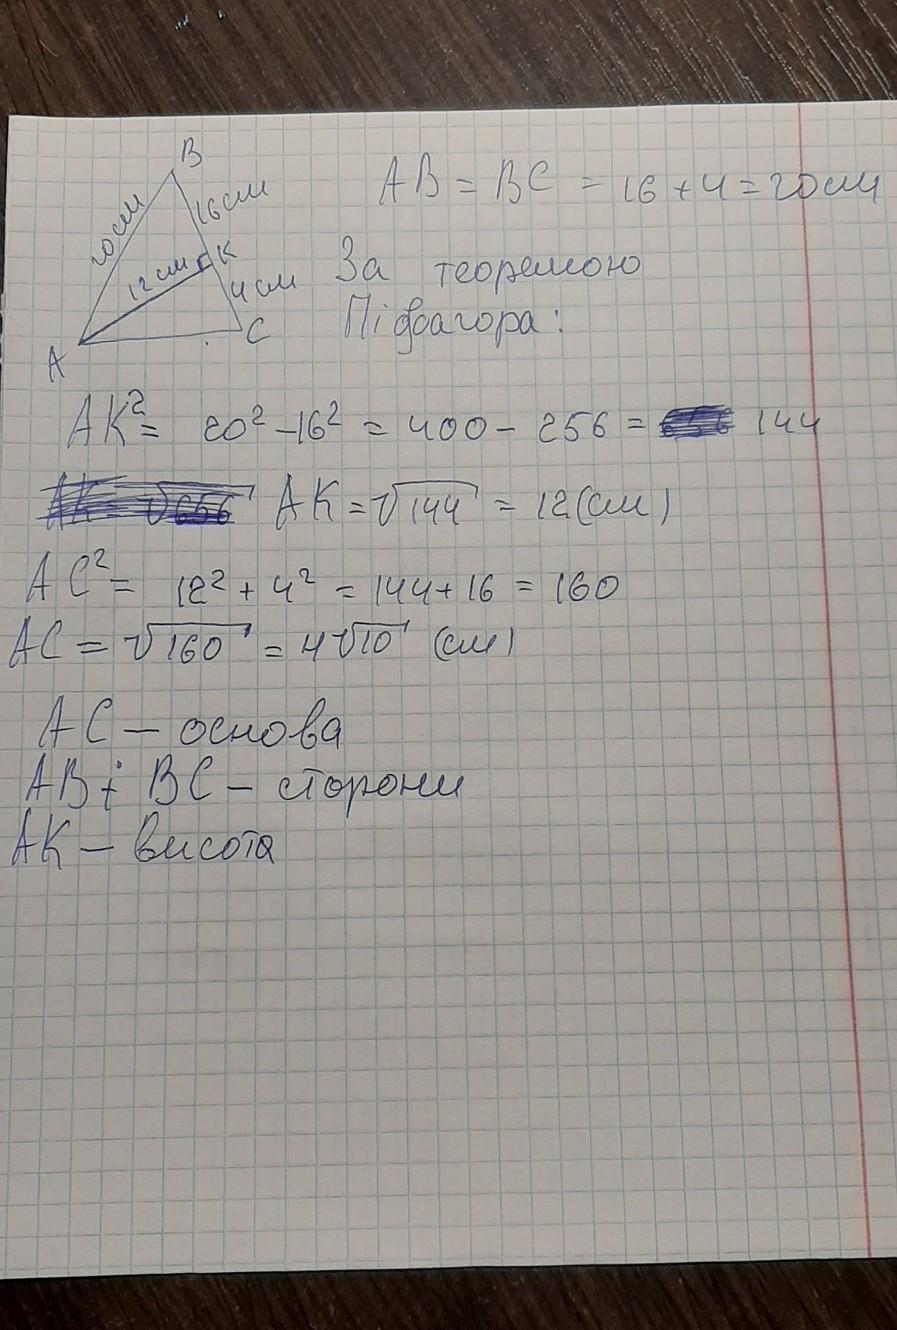 B
16см
20см
12см
K
4см
A
C
AB = BC = 16 + 4 = 20см
За теоремою
Піфагора:
AK² = 20² - 16² = 400 - 256 = 144
AK = √144 = 12(см)
AC² = 12² + 4² = 144 + 16 = 160
AC = √160 = 4√10 (см)
AC – основа
AB і BC – сторони
AK – висота